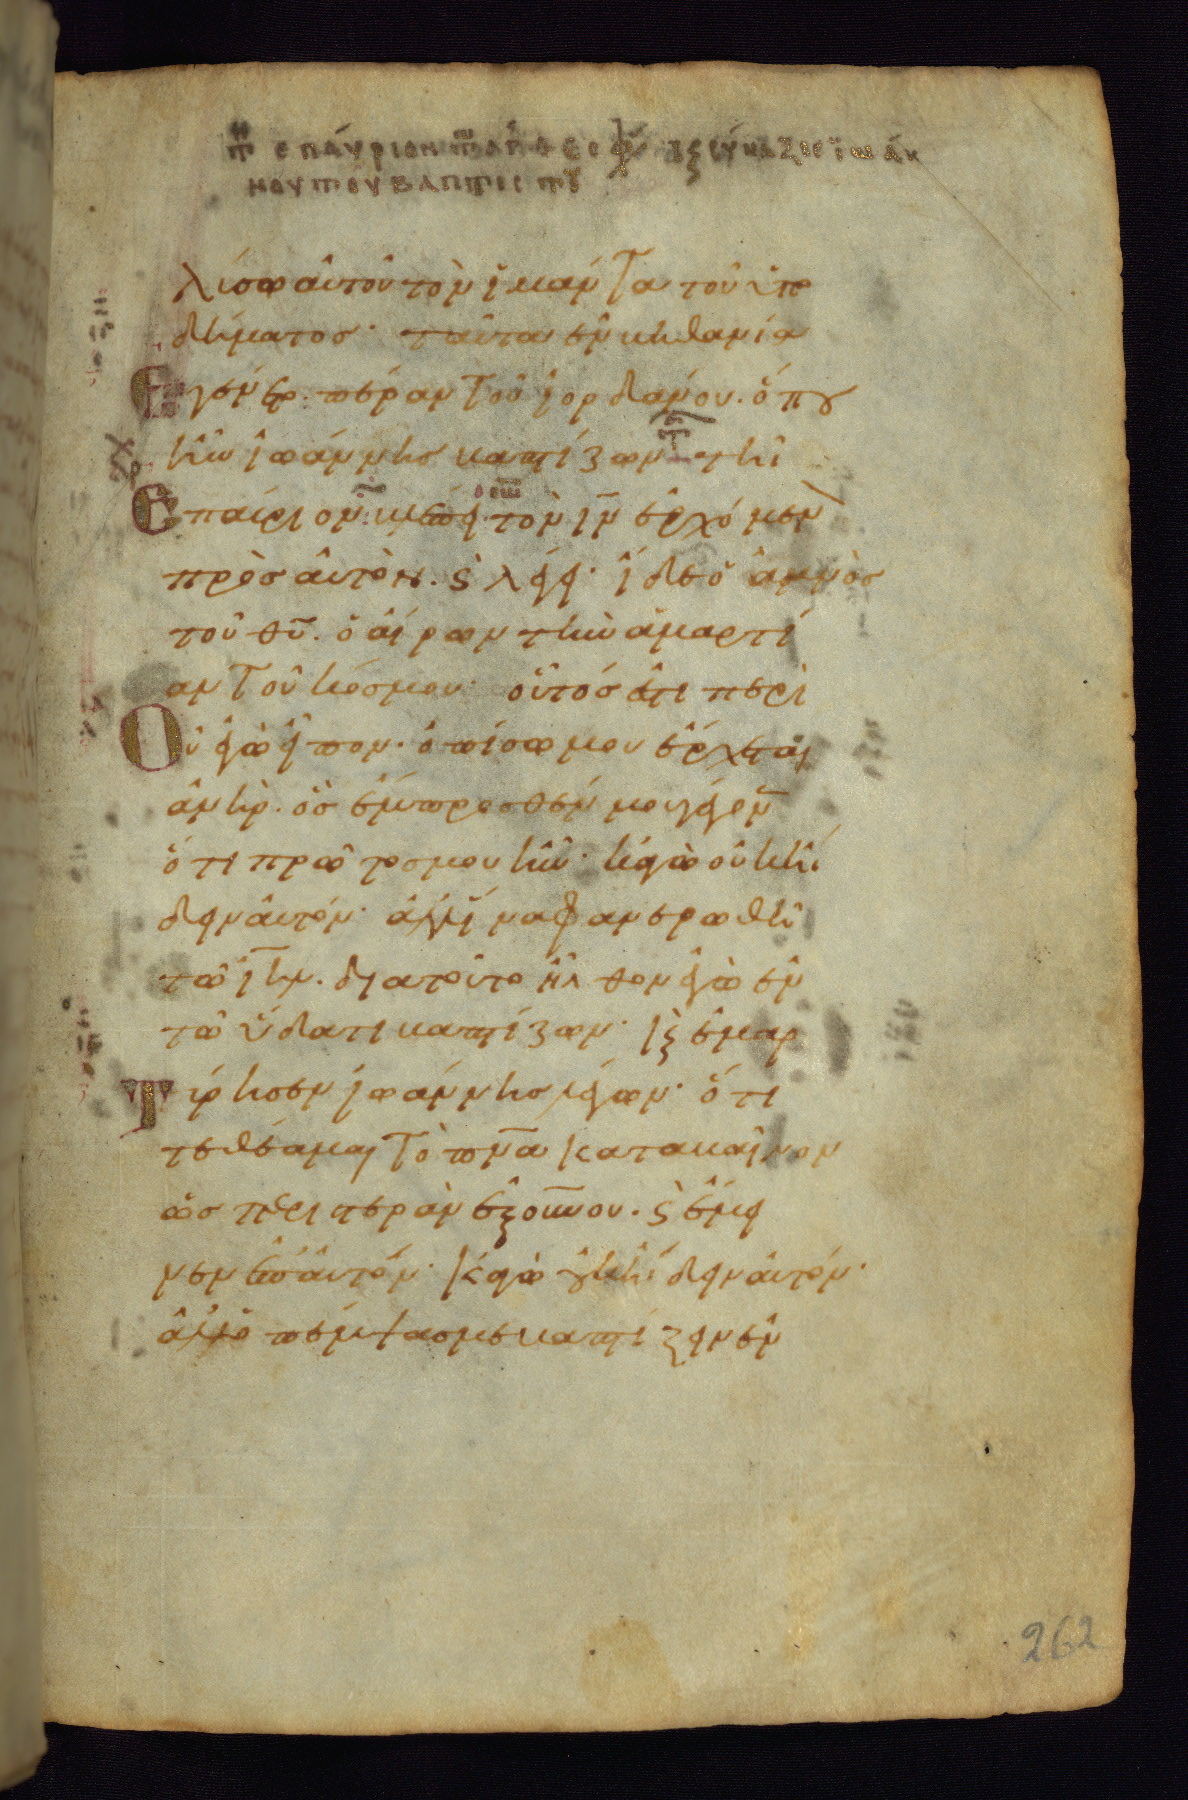 τῇ ἐπάυριον τῶν ἁγ θεοφ ἡ σύναξις ἰωάν
νου τοῦ βαπτιστοῦ
λύσω ἀυτοῦ τὸν ἱμάντα τοῦ ὑπο
δήματος· ταῦτα ἐν βηθανία
ἐγένετο πέραν τοῦ ἰορδάνου. ὅπου
ἦν ἰωάννης βαπτίζων τῆ
ἐπάυριον βλέπει τὸν ιν ἐρχόμεν
πρὸς ἀυτὸν. ϗ λέγει· ἴδε ὁ ἀμνὸς
τοῦ θυ. ὁ αἴρων τὴν ἁμαρτί
αν τοῦ κόσμου· οὗτός ἐστι περὶ
οὗ ἐγὼ εἶπον. ὀπίσω μου ἔρχεται
ἀνήρ. ὃς ἔμπροσθέν μου γέγονεν
ὅτι πρῶτος μου ἦν· κἀγὼ οὐκ ἤ
δειν ἀυτόν· ἀλλ' ἵνα φανερωθῆ
τῶ ιηλ. διατοῦτο ἦλθον ἐγὼ ἐν
τῶ ὕδατι βαπτίζων· καὶ ἐμαρ
τύρησεν ἰωάννης λέγων· ὅτι
τεθέαμαι τὸ πνα καταβαῖνον
ὡς περιστερὰν ἐξ οὐνου. ϗ ἔμει
νεν ἐπ' ἀυτόν· κἀγὼ οὐκ ἤδειν ἀυτόν·
ἀλλ' ὁ πέμψας με βαπτίζειν ἐν
262